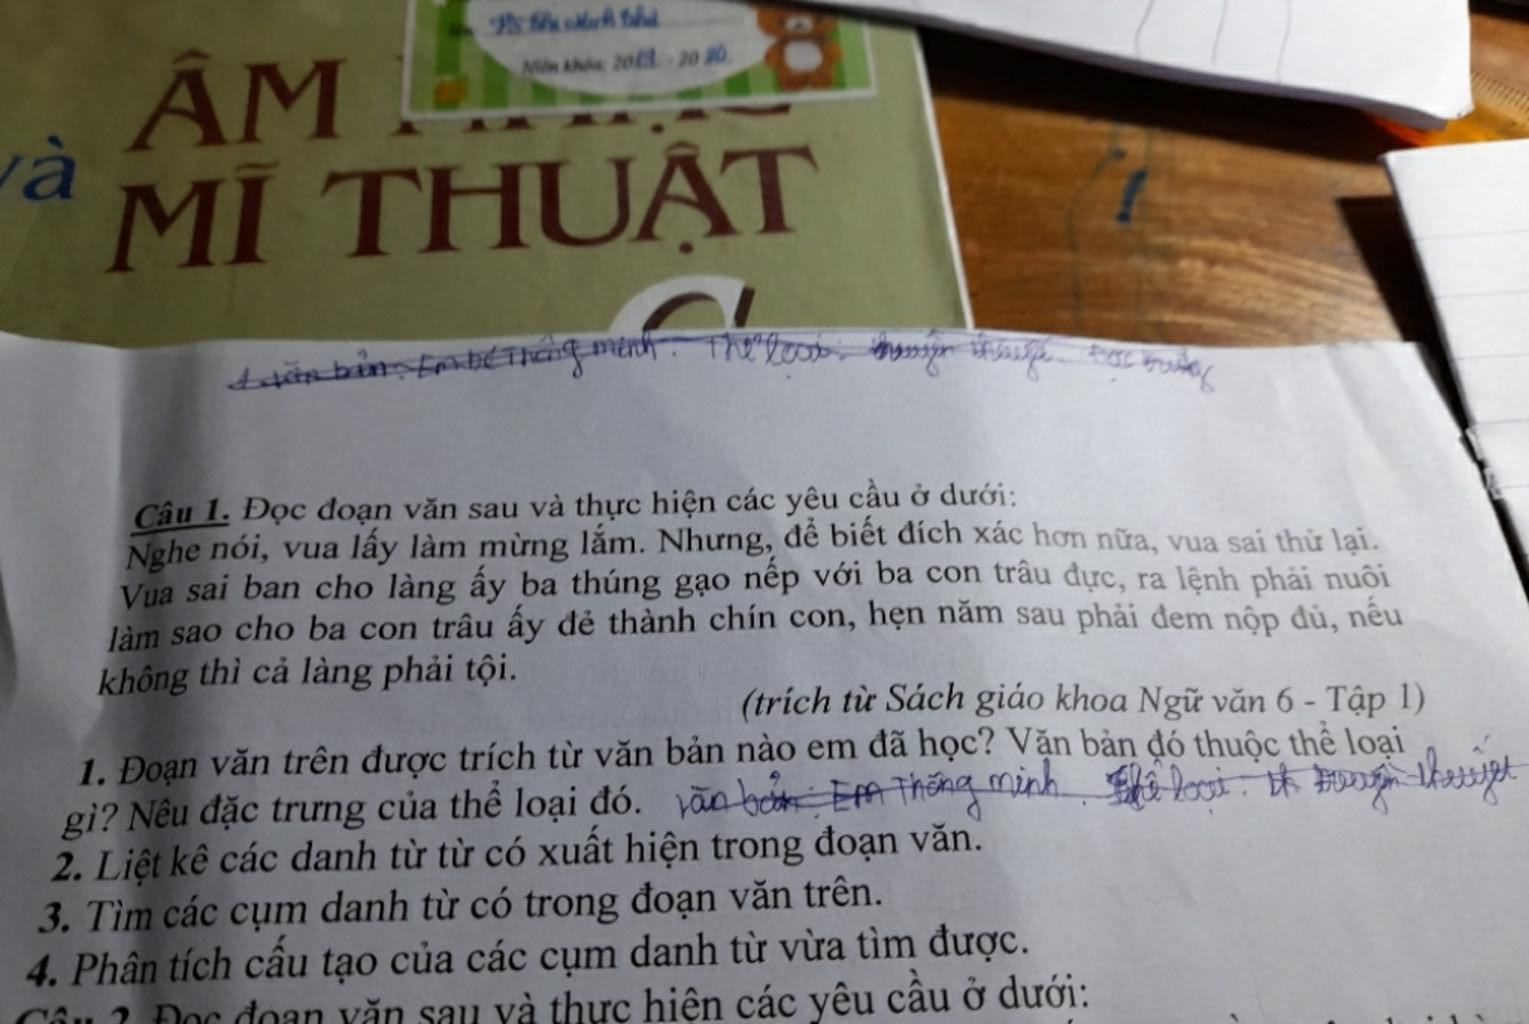 Niên khóa: 2019 - 2020
ÂM
và
MĨ THUẬT
văn bản: Em bé Thông minh. Thể loại: truyện
Câu 1. Đọc đoạn văn sau và thực hiện các yêu cầu ở dưới:
Nghe nói, vua lấy làm mừng lắm. Nhưng, để biết đích xác hơn nữa, vua sai thử lại.
Vua sai ban cho làng ấy ba thúng gạo nếp với ba con trâu đực, ra lệnh phải nuôi
làm sao cho ba con trâu ấy đẻ thành chín con, hẹn năm sau phải đem nộp đủ, nếu
không thì cả làng phải tội.
(trích từ Sách giáo khoa Ngữ văn 6 - Tập 1)
1. Đoạn văn trên được trích từ văn bản nào em đã học? Văn bản đó thuộc thể loại
gì? Nêu đặc trưng của thể loại đó. văn bản: Em Thông minh. Thể loại: truyện
2. Liệt kê các danh từ từ có xuất hiện trong đoạn văn.
3. Tìm các cụm danh từ có trong đoạn văn trên.
4. Phân tích cấu tạo của các cụm danh từ vừa tìm được.
Câu 2. Đọc đoạn văn sau và thực hiện các yêu cầu ở dưới: